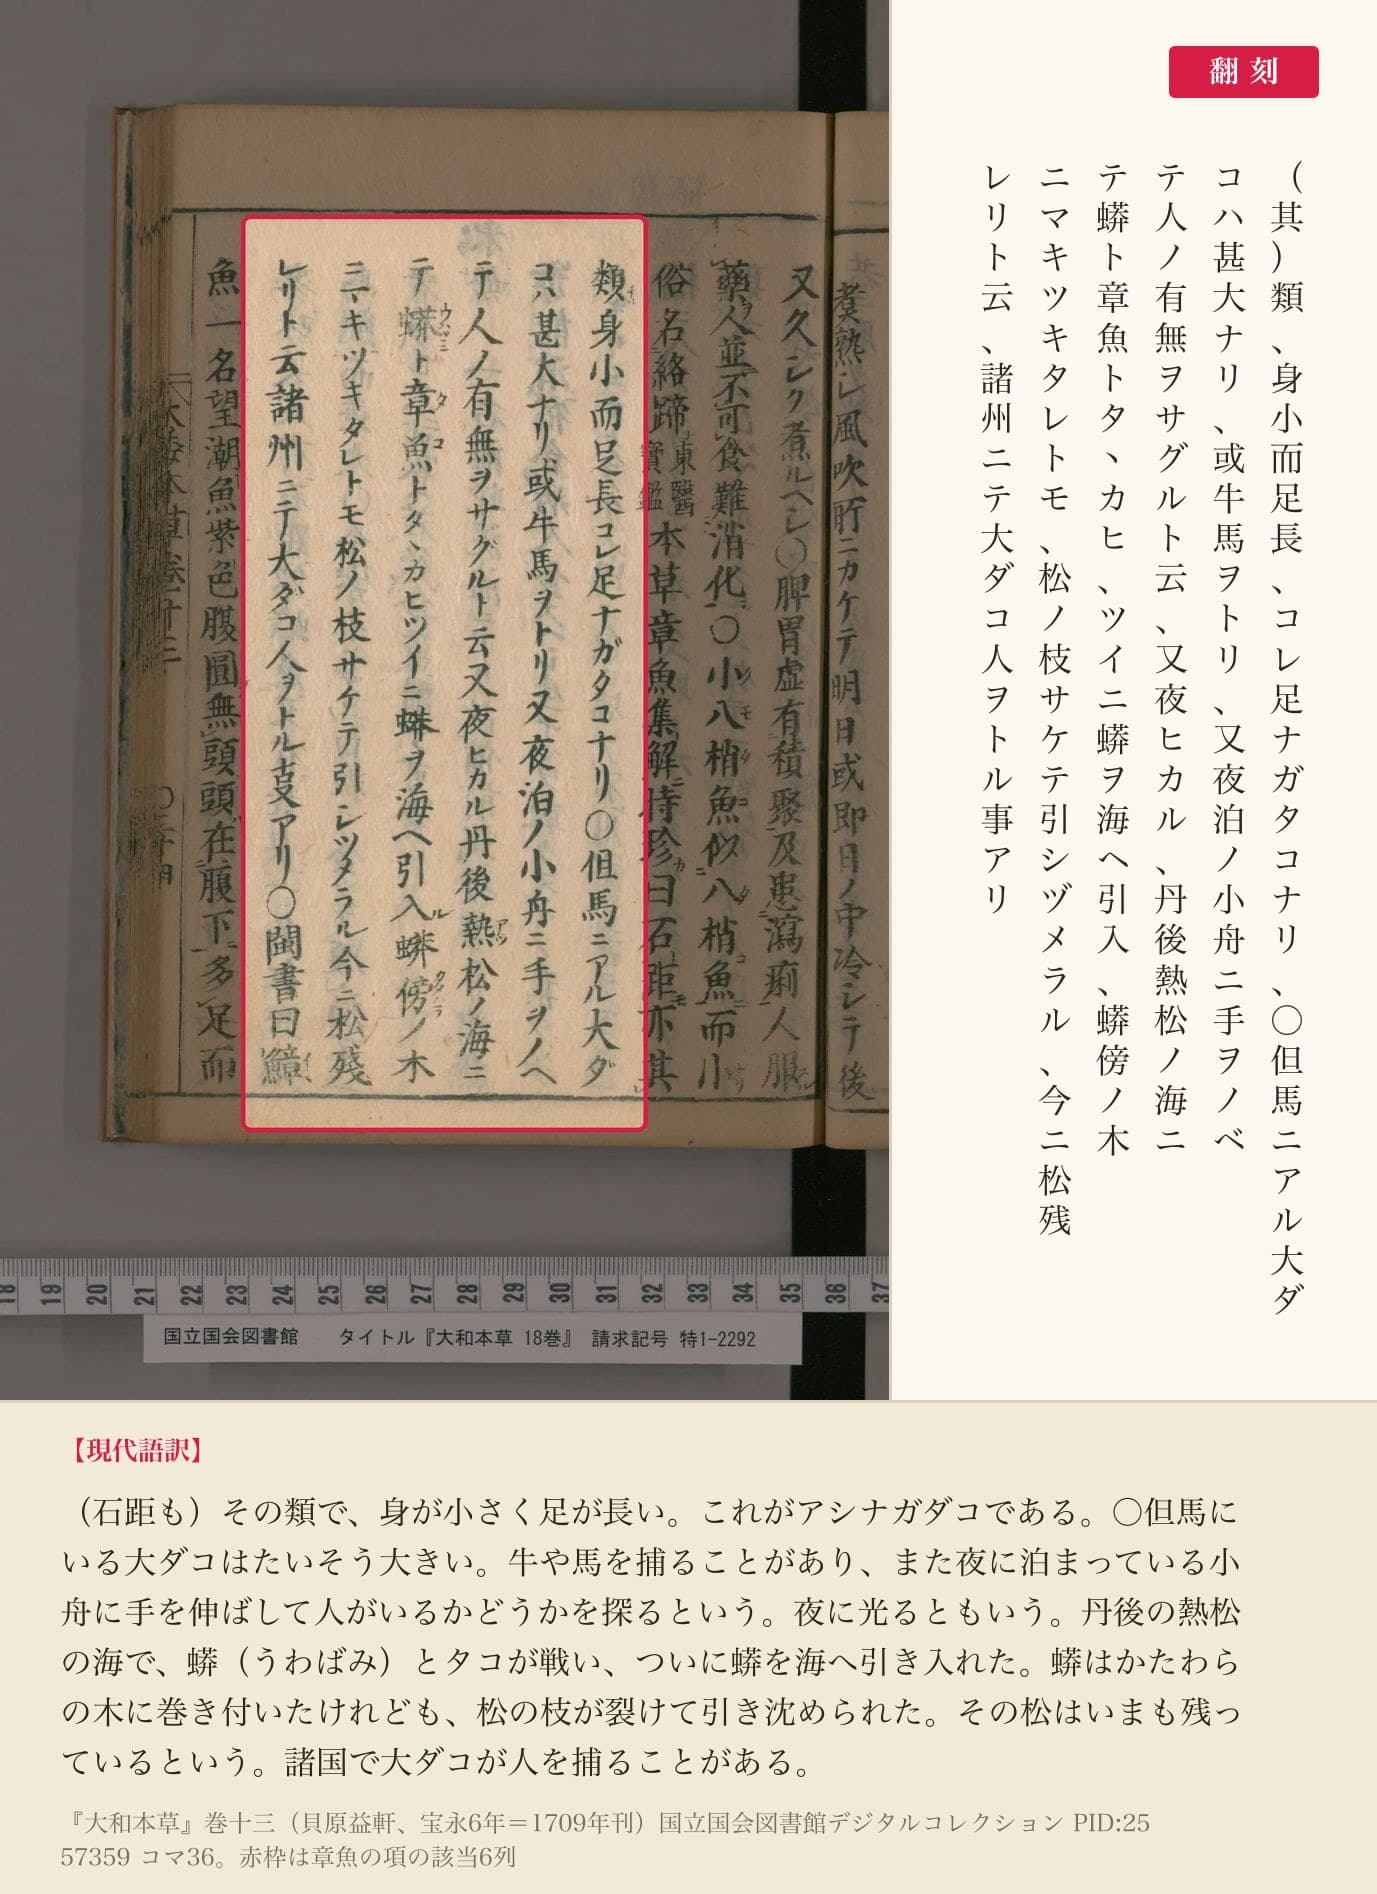 煮熟シ風吹所ニカケテ明日或即日ノ中冷シテ後
又久シク煮ルヘシ〇脾胃虚有積聚及患瀉痢人服
藥人並不可食難消化〇小八梢魚似八梢魚而小
俗名絡蹄東醫寶鑑本草章魚集解時珍曰石距亦其
類身小而足長コレ足ナガタコナリ〇但馬ニアル大ダ
コハ甚大ナリ或牛馬ヲトリ又夜泊ノ小舟ニ手ヲノヘ
テ人ノ有無ヲサグルト云又夜ヒカル丹後熱松ノ海ニ
テ蟒ト章魚トタヽカヒツイニ蟒ヲ海ヘ引入蟒傍ノ木
ニマキツキタレトモ松ノ枝サケテ引シツメラル今ニ松殘
レリト云諸州ニテ大ダコ人ヲトル叓アリ〇閩書曰鱆
魚一名望潮魚紫色腹圓無頭頭在腹下多足而
大倭本草卷十三
翻刻
（其）類、身小而足長、コレ足ナガタコナリ、〇但馬ニアル大ダ
コハ甚大ナリ、或牛馬ヲトリ、又夜泊ノ小舟ニ手ヲノベ
テ人ノ有無ヲサグルト云、又夜ヒカル、丹後熱松ノ海ニ
テ蟒ト章魚トタヽカヒ、ツイニ蟒ヲ海ヘ引入、蟒傍ノ木
ニマキツキタレトモ、松ノ枝サケテ引シヅメラル、今ニ松残
レリト云、諸州ニテ大ダコ人ヲトル事アリ
18 19 20 21 22 23 24 25 26 27 28 29 30 31 32 33 34 35 36 37
国立国会図書館 タイトル『大和本草 18巻』 請求記号 特1-2292
【現代語訳】
（石距も）その類で、身が小さく足が長い。これがアシナガダコである。〇但馬に
いる大ダコはたいそう大きい。牛や馬を捕ることがあり、また夜に泊まっている小
舟に手を伸ばして人がいるかどうかを探るという。夜に光るともいう。丹後の熱松
の海で、蟒（うわばみ）とタコが戦い、ついに蟒を海へ引き入れた。蟒はかたわら
の木に巻き付いたけれども、松の枝が裂けて引き沈められた。その松はいまも残っ
ているという。諸国で大ダコが人を捕ることがある。
『大和本草』巻十三（貝原益軒、宝永6年＝1709年刊）国立国会図書館デジタルコレクション PID:25
57359 コマ36。赤枠は章魚の項の該当6列